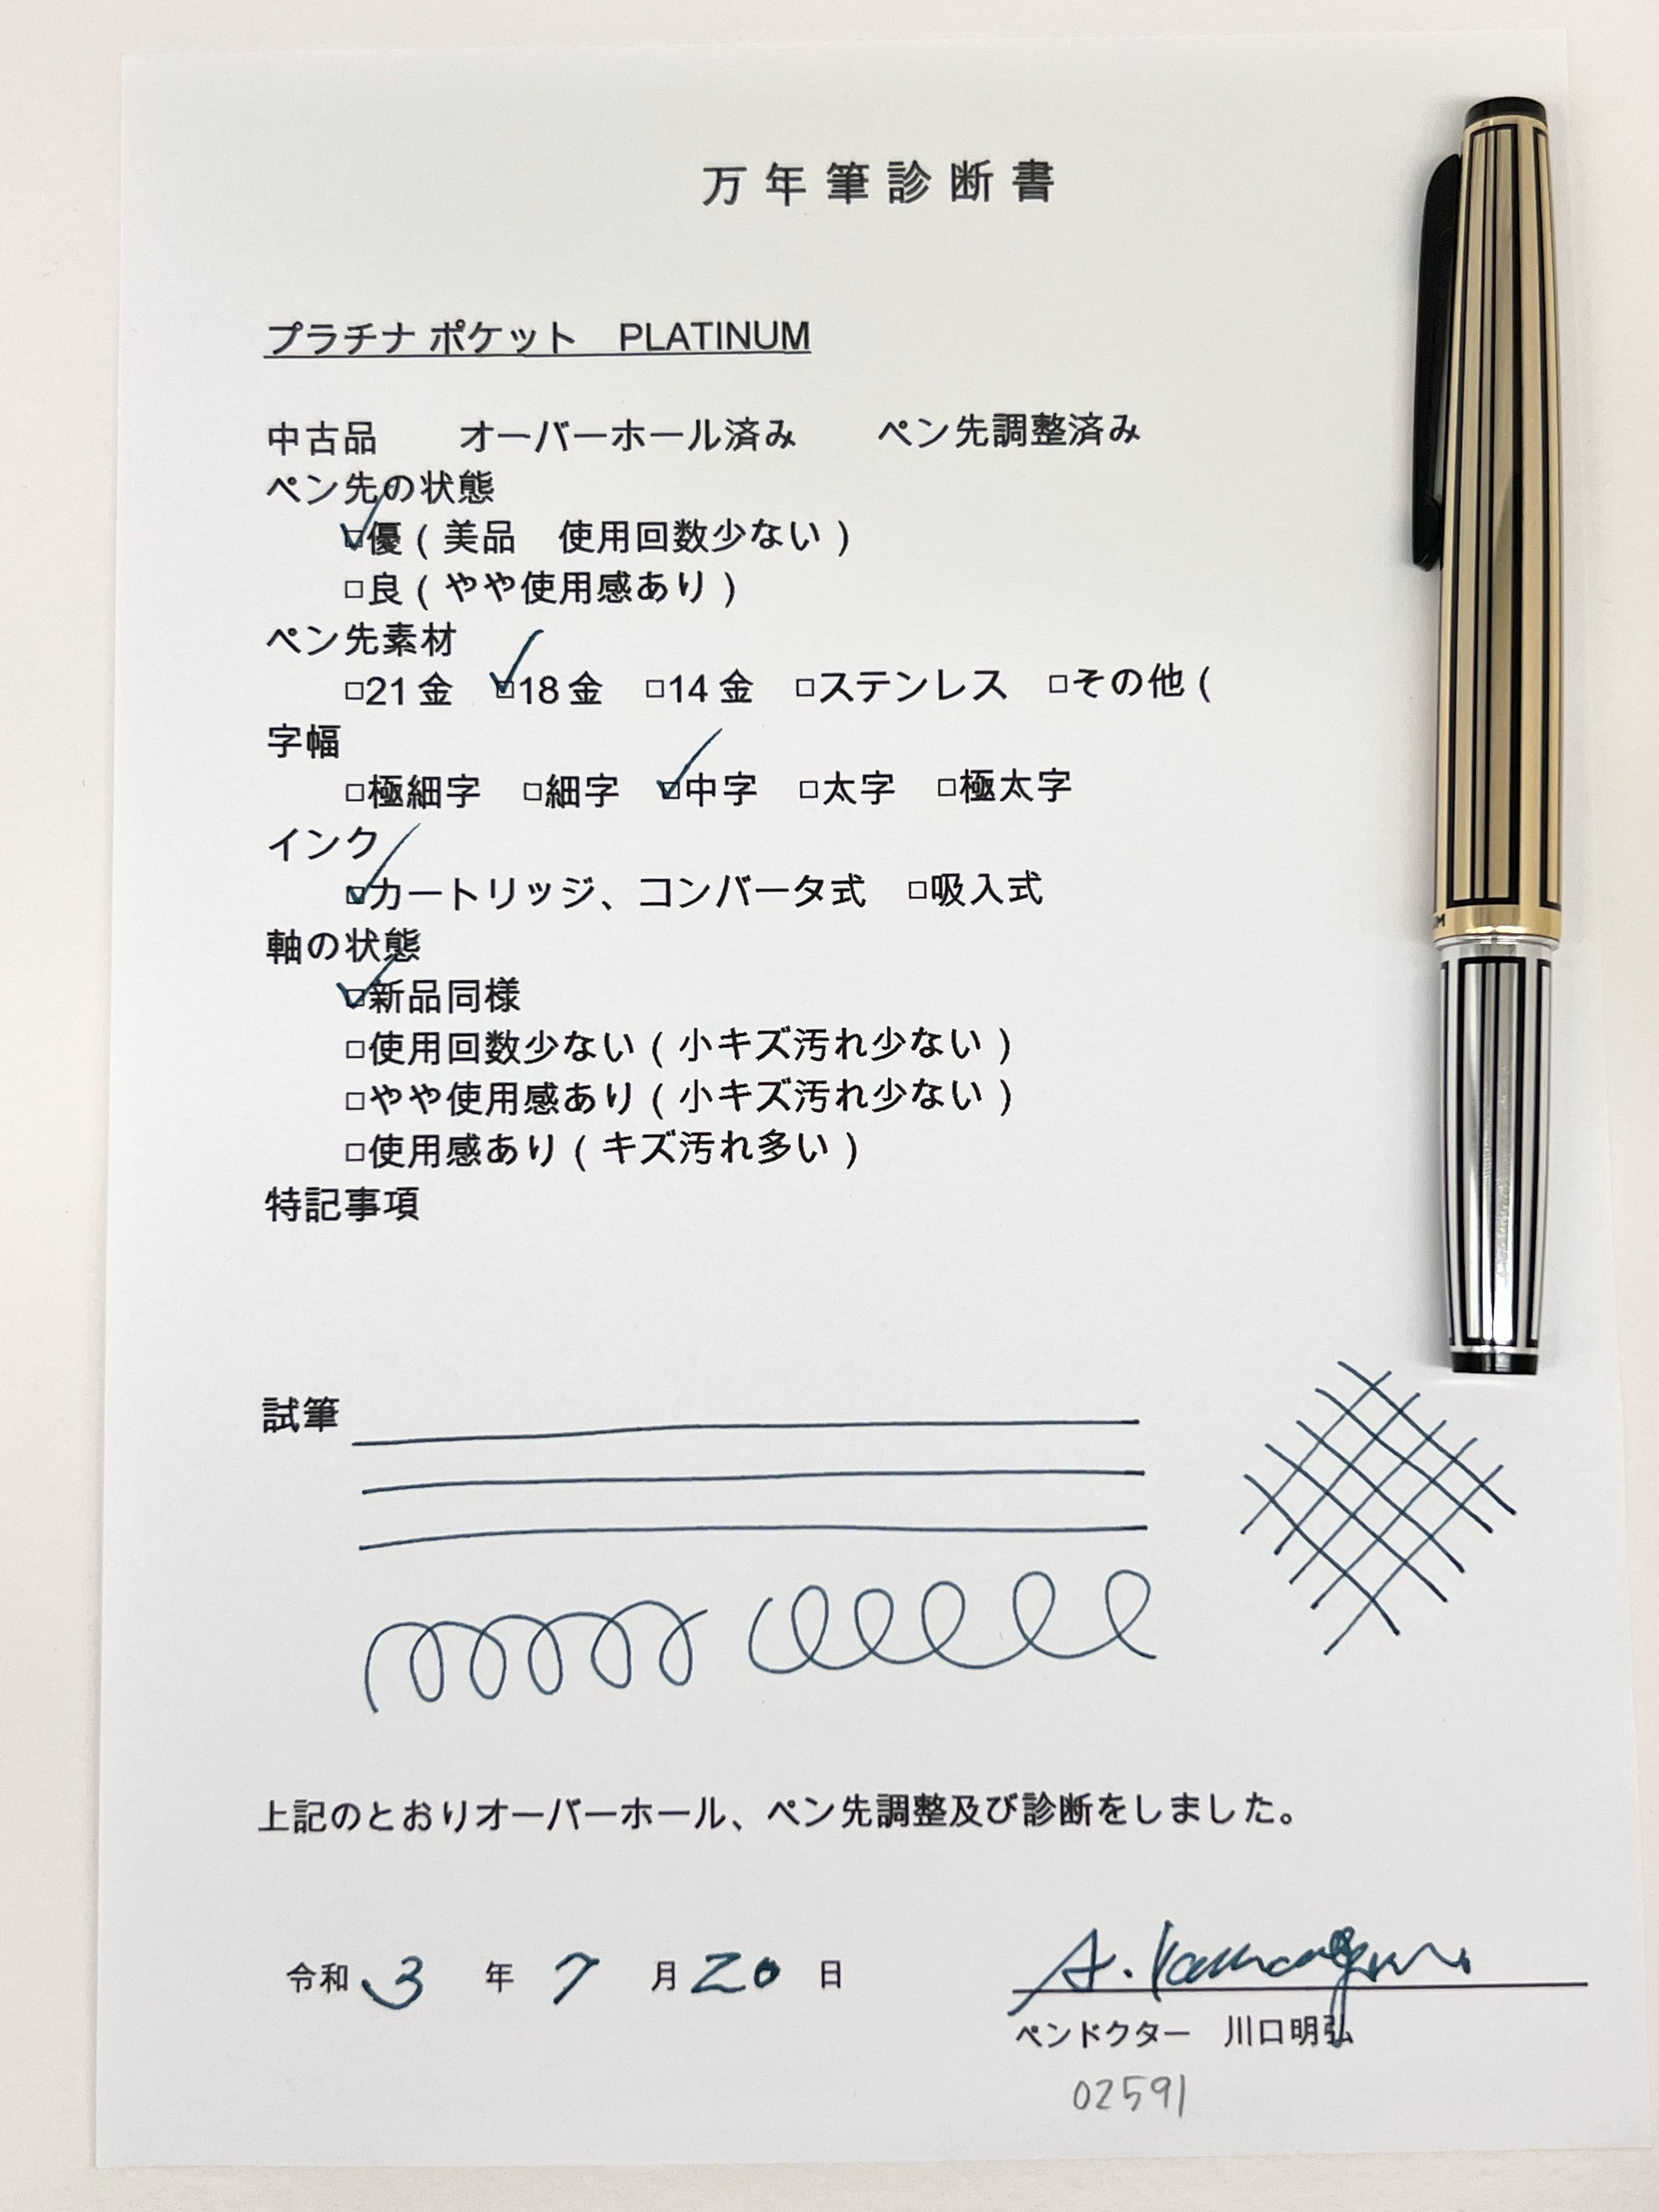 万年筆診断書
プラチナ ポケット　PLATINUM
中古品　　オーバーホール済み　　ペン先調整済み
ペン先の状態
☑優（美品　使用回数少ない）
□良（やや使用感あり）
ペン先素材
□21金　☑18金　□14金　□ステンレス　□その他（
字幅
□極細字　□細字　☑中字　□太字　□極太字
インク
☑カートリッジ、コンバータ式　□吸入式
軸の状態
☑新品同様
□使用回数少ない（小キズ汚れ少ない）
□やや使用感あり（小キズ汚れ少ない）
□使用感あり（キズ汚れ多い）
特記事項
試筆
上記のとおりオーバーホール、ペン先調整及び診断をしました。
令和 3 年 7 月 20 日
A. Kawaguchi
ペンドクター　川口明弘
02591